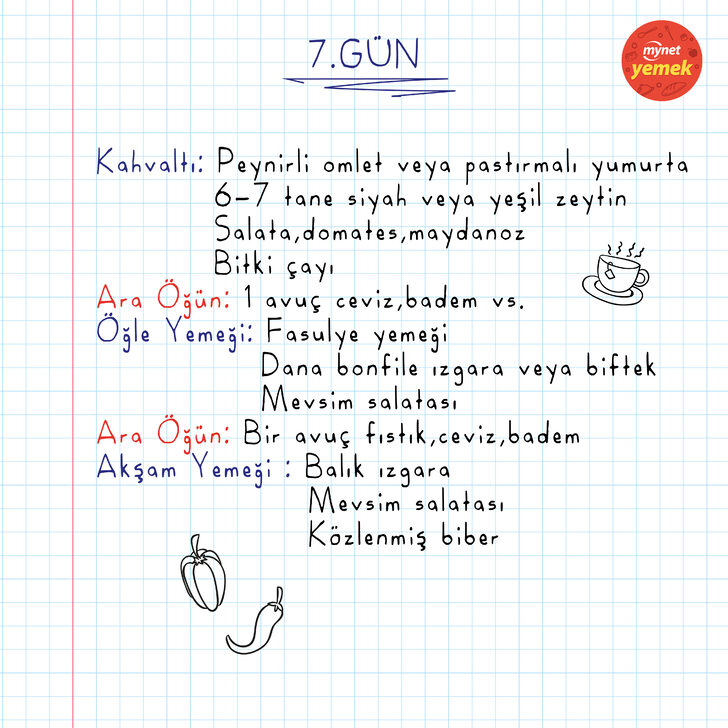 7.GÜN
mynet
yemek
Kahvaltı: Peynirli omlet veya pastırmalı yumurta
6-7 tane siyah veya yeşil zeytin
Salata,domates,maydanoz
Bitki çayı
Ara Öğün: 1 avuç ceviz,badem vs.
Öğle Yemeği: Fasulye yemeği
Dana bonfile ızgara veya biftek
Mevsim salatası
Ara Öğün: Bir avuç fıstık,ceviz,badem
Akşam Yemeği : Balık ızgara
Mevsim salatası
Közlenmiş biber